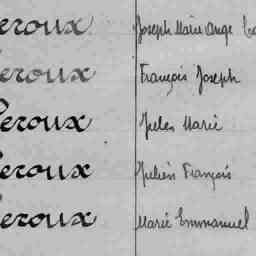 eroux Joseph Marie Ange
eroux François Joseph
Leroux Jules Marie
Leroux Julien François
Leroux Marie Emmanuel